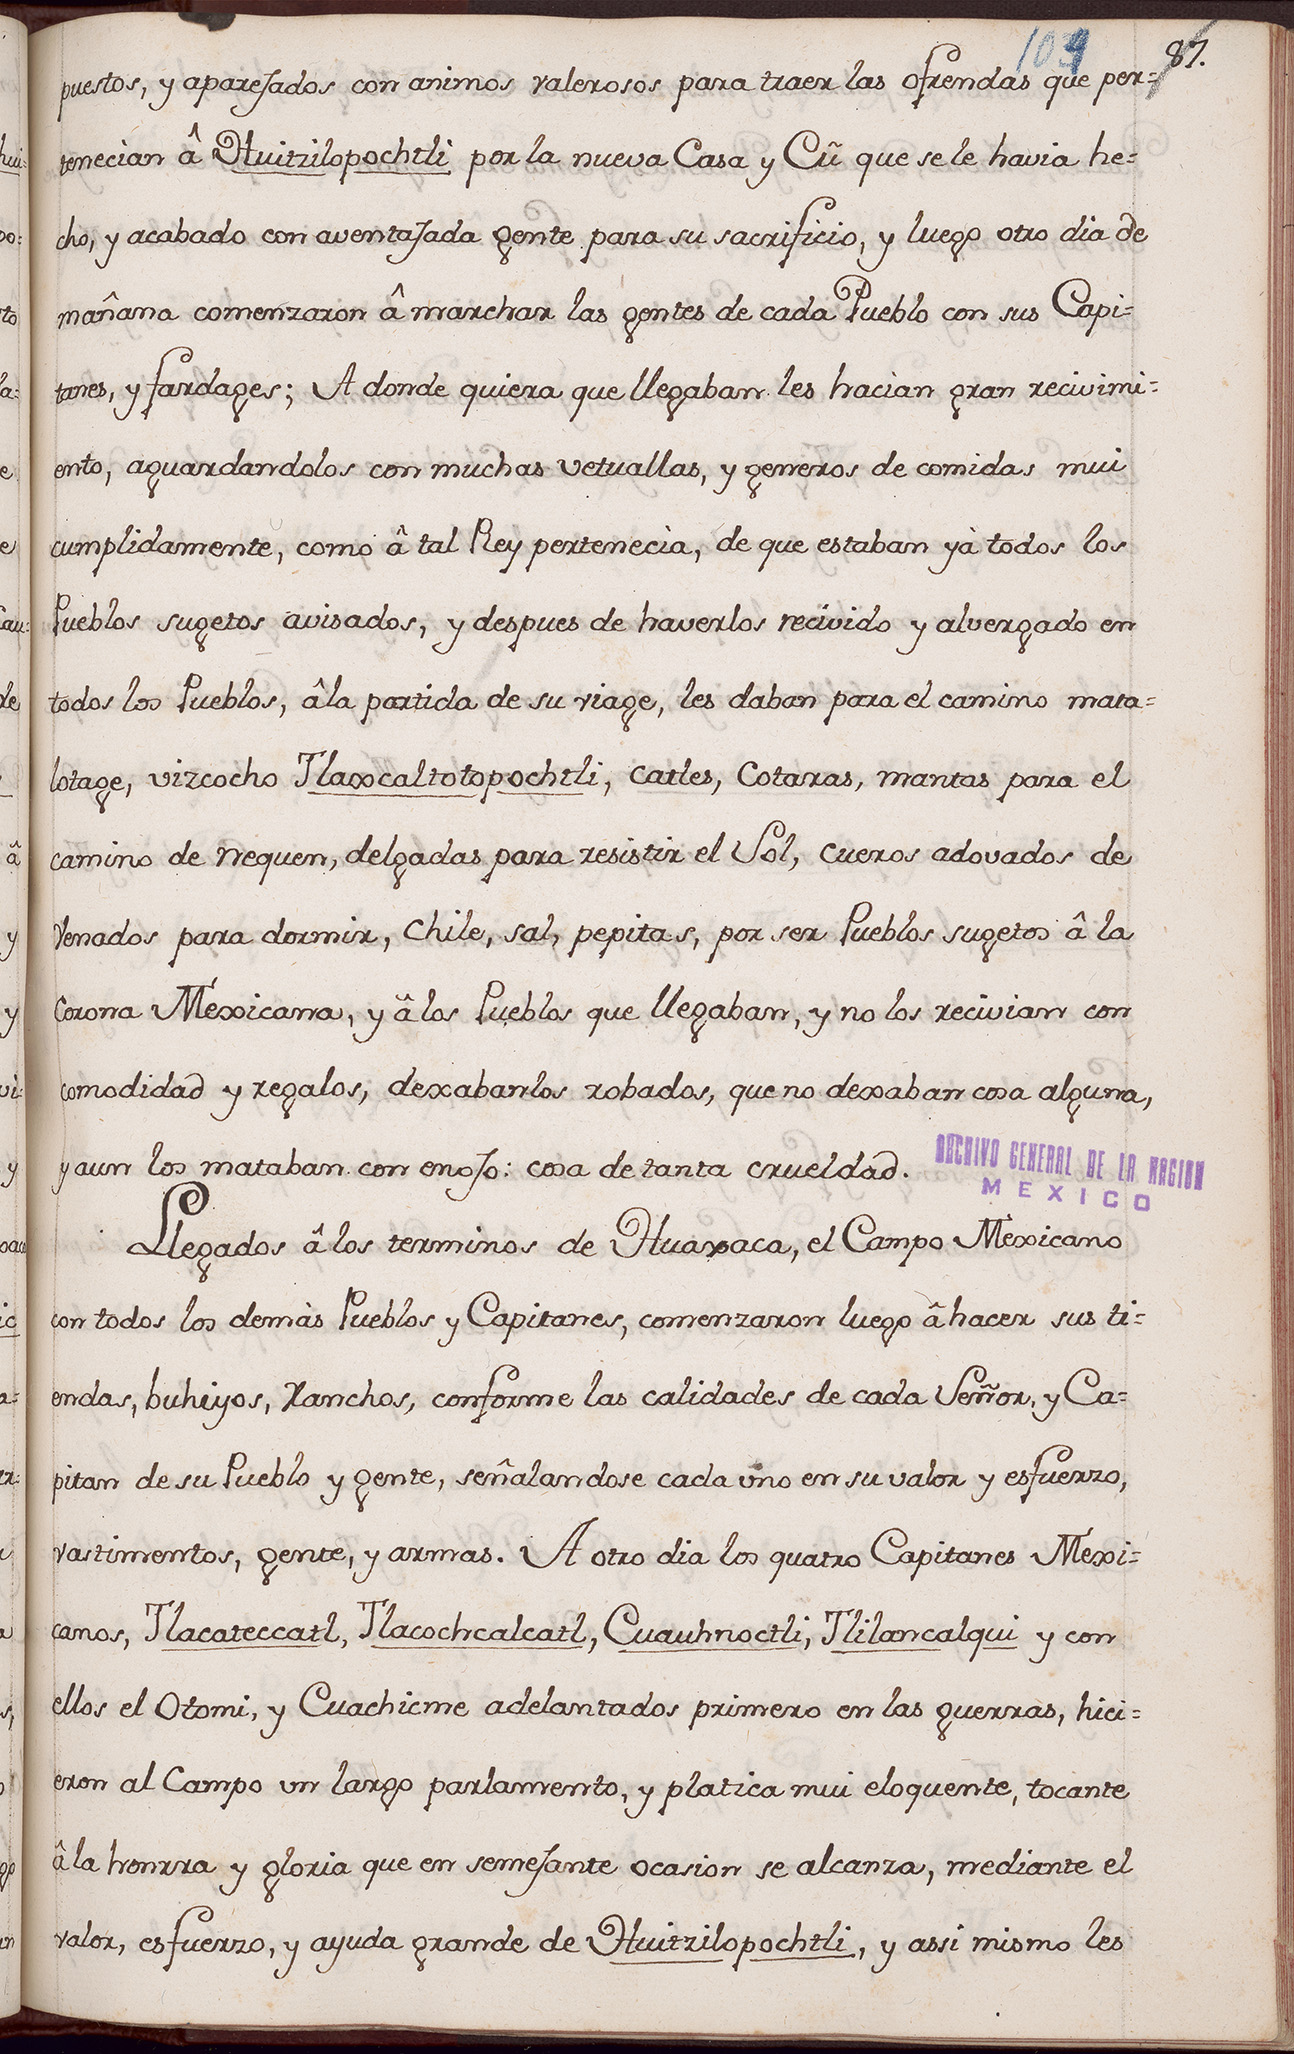 109 87.
puestos, y aparejados con animos valerosos para traer las ofrendas que per=
tenecian â Huitzilopochtli por la nueva Casa y Cũ que se le havia he=
cho, y acabado con aventajada gente para su sacrificio, y luego otro dia de
mañana comenzaron â marchar las gentes de cada Pueblo con sus Capi=
tanes, y fardages; A donde quiera que llegaban les hacian gran recivimi=
ento, aguardandolos con muchas vetuallas, y generos de comidas mui
cumplidamente, como â tal Rey pertenecia, de que estaban yà todos los
Pueblos sugetos avisados, y despues de haverlos recivido y alvergado en
todos los Pueblos, â la partida de su viage, les daban para el camino mata=
lotage, vizcocho Tlaxcaltotopochtli, catles, Cotaras, mantas para el
camino de nequen, delgadas para resistir el Sol, cueros adovados de
Venados para dormir, Chile, sal, pepitas, por ser Pueblos sugetos â la
Corona Mexicana, y â los Pueblos que llegaban, y no los recivian con
comodidad y regalos, dexabanlos robados, que no dexaban cosa alguna,
y aun los mataban con enojo: cosa de tanta crueldad.
ARCHIVO GENERAL DE LA NACION
MEXICO
Llegados â los terminos de Huaxaca, el Campo Mexicano
con todos los demàs Pueblos y Capitanes, comenzaron luego â hacer sus ti=
endas, buhiyos, Ranchos, conforme las calidades de cada Señor, y Ca=
pitan de su Pueblo y gente, señalandose cada uno en su valor y esfuerzo,
vastimentos, gente, y armas. A otro dia los quatro Capitanes Mexi=
canos, Tlacateccatl, Tlacochcalcatl, Cuauhnoctli, Tlilancalqui y con
ellos el Otomi, y Cuachicme adelantados primero en las guerras, hici=
eron al Campo un largo parlamento, y platica mui eloquente, tocante
â la honrra y gloria que en semejante ocasion se alcanza, mediante el
valor, esfuerzo, y ayuda grande de Huitzilopochtli, y assi mismo les